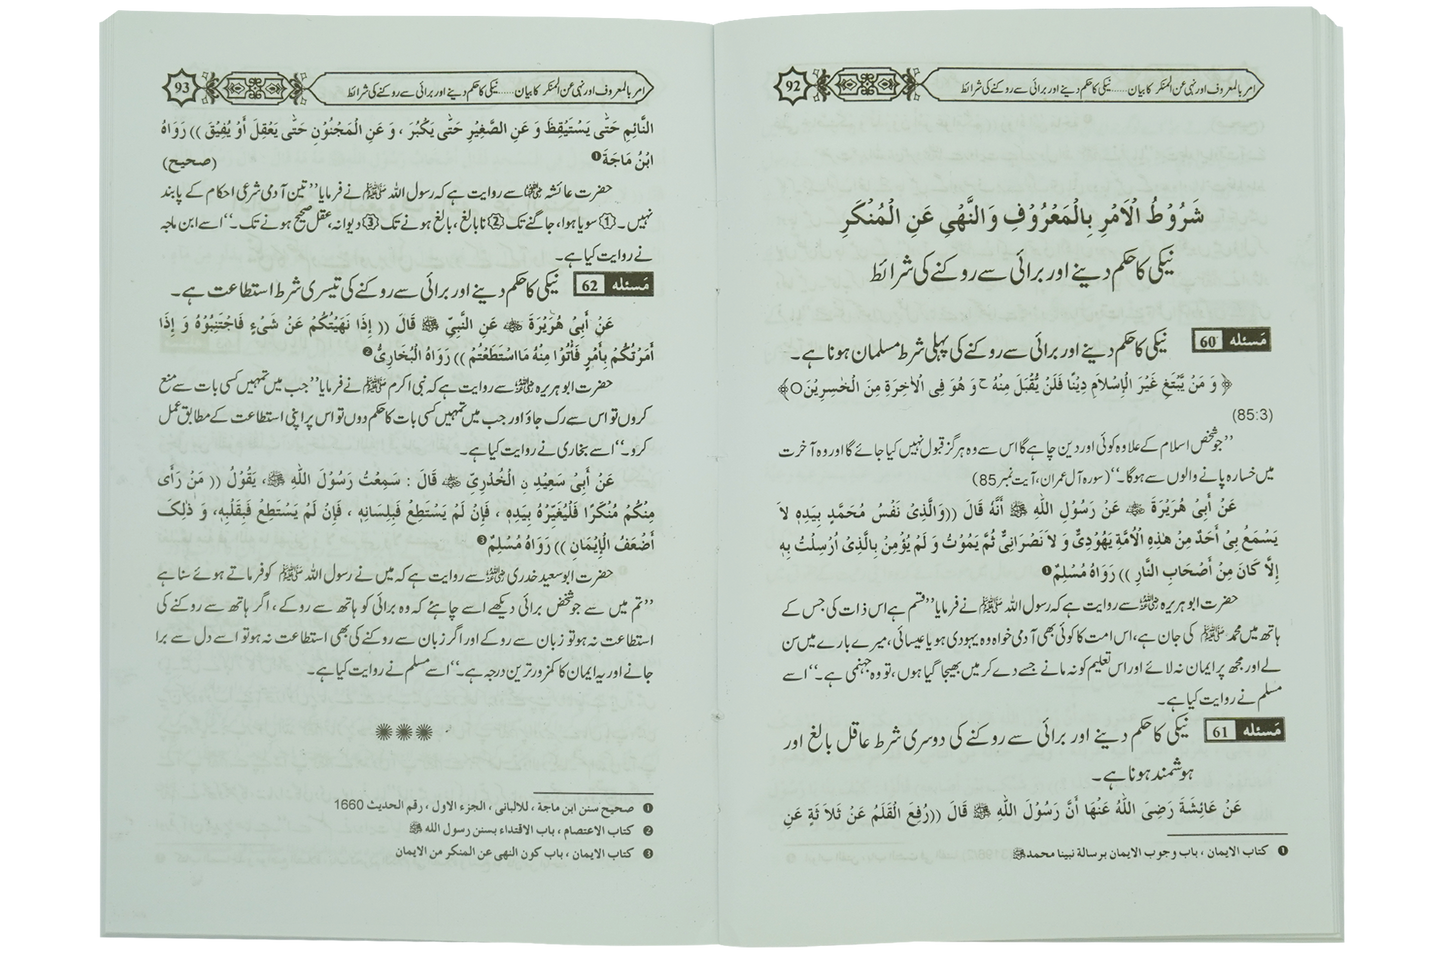 92
امر بالمعروف اور نہی عن المنکر کا بیان......نیکی کا حکم دینے اور برائی سے روکنے کی شرائط
شَرُوْطُ الْاَمْرِ بِالْمَعْرُوْفِ وَالنَّهْیِ عَنِ الْمُنْکَرِ
نیکی کا حکم دینے اور برائی سے روکنے کی شرائط
مَسئلہ 60 نیکی کا حکم دینے اور برائی سے روکنے کی پہلی شرط مسلمان ہونا ہے۔
﴿ وَ مَنْ یَّبْتَغِ غَیْرَ الْاِسْلاَمِ دِیْنًا فَلَنْ یُّقْبَلَ مِنْهُ ج وَ هُوَ فِی الْاٰخِرَةِ مِنَ الْخٰسِرِیْنَ○﴾
(85:3)
’’جو شخص اسلام کے علاوہ کوئی اور دین چاہے گا اس سے وہ ہرگز قبول نہیں کیا جائے گا اور وہ آخرت
میں خسارہ پانے والوں سے ہوگا۔‘‘ (سورہ آل عمران، آیت نمبر 85)
عَنْ أَبِیْ هُرَیْرَةَ ﷛ عَنْ رَسُوْلِ اللّٰهِ ﷺ أَنَّهُ قَالَ ((وَالَّذِیْ نَفْسُ مُحَمَّدٍ بِیَدِهِ لاَ
یَسْمَعُ بِیْ أَحَدٌ مِنْ هٰذِهِ الْأُمَّةِ یَهُوْدِیٌّ وَ لاَ نَصْرَانِیٌّ ثُمَّ یَمُوْتُ وَ لَمْ یُؤْمِنْ بِالَّذِیْ اُرْسِلْتُ بِهِ
إِلاَّ کَانَ مِنْ أَصْحَابِ النَّارِ )) رَوَاهُ مُسْلِمٌ❶
حضرت ابو ہریرہ ﷛ سے روایت ہے کہ رسول اللہ ﷺ نے فرمایا ’’قسم ہے اس ذات کی جس کے
ہاتھ میں محمد ﷺ کی جان ہے، اس امت کا کوئی بھی آدمی خواہ وہ یہودی ہو یا عیسائی، میرے بارے میں سن
لے اور مجھ پر ایمان نہ لائے اور اس تعلیم کو نہ مانے جسے دے کر میں بھیجا گیا ہوں، تو وہ جہنمی ہے۔‘‘ اسے
مسلم نے روایت کیا ہے۔
مَسئلہ 61 نیکی کا حکم دینے اور برائی سے روکنے کی دوسری شرط عاقل بالغ اور
ہوشمند ہونا ہے۔
عَنْ عَائِشَةَ رَضِیَ اللّٰهُ عَنْهَا أَنَّ رَسُوْلَ اللّٰهِ ﷺ قَالَ ((رُفِعَ الْقَلَمُ عَنْ ثَلاَثَةٍ عَنِ
❶ کتاب الایمان ، باب وجوب الایمان برسالة نبینا محمد ﷺ
93
امر بالمعروف اور نہی عن المنکر کا بیان......نیکی کا حکم دینے اور برائی سے روکنے کی شرائط
النَّائِمِ حَتّٰی یَسْتَیْقِظَ وَ عَنِ الصَّغِیْرِ حَتّٰی یَکْبُرَ ، وَ عَنِ الْمَجْنُوْنِ حَتّٰی یَعْقِلَ أَوْ یُفِیْقَ )) رَوَاهُ
ابْنُ مَاجَةَ❶ (صحیح)
حضرت عائشہ ﷞ سے روایت ہے کہ رسول اللہ ﷺ نے فرمایا ’’تین آدمی شرعی احکام کے پابند
نہیں۔ ① سویا ہوا، جاگنے تک ② نابالغ، بالغ ہونے تک ③ دیوانہ، عقل صحیح ہونے تک۔‘‘ اسے ابن ماجہ
نے روایت کیا ہے۔
مَسئلہ 62 نیکی کا حکم دینے اور برائی سے روکنے کی تیسری شرط استطاعت ہے۔
عَنْ أَبِیْ هُرَیْرَةَ ﷛ عَنِ النَّبِیِّ ﷺ قَالَ (( إِذَا نَهَیْتُکُمْ عَنْ شَیْءٍ فَاجْتَنِبُوْهُ وَ إِذَا
أَمَرْتُکُمْ بِأَمْرٍ فَأْتُوْا مِنْهُ مَا اسْتَطَعْتُمْ )) رَوَاهُ الْبُخَارِیُّ❷
حضرت ابو ہریرہ ﷛ سے روایت ہے کہ نبی اکرم ﷺ نے فرمایا ’’جب میں تمہیں کسی بات سے منع
کروں تو اس سے رک جاؤ اور جب میں تمہیں کسی بات کا حکم دوں تو اس پر اپنی استطاعت کے مطابق عمل
کرو۔‘‘ اسے بخاری نے روایت کیا ہے۔
عَنْ أَبِیْ سَعِیْدِ نِ الْخُدْرِیِّ ﷛ قَالَ : سَمِعْتُ رَسُوْلَ اللّٰهِ ﷺ، یَقُوْلُ (( مَنْ رَأَی
مِنْکُمْ مُنْکَرًا فَلْیُغَیِّرْهُ بِیَدِهِ ، فَإِنْ لَمْ یَسْتَطِعْ فَبِلِسَانِهِ ، فَإِنْ لَمْ یَسْتَطِعْ فَبِقَلْبِهِ، وَ ذٰلِکَ
أَضْعَفُ الْإِیْمَانِ )) رَوَاهُ مُسْلِمٌ❸
حضرت ابو سعید خدری ﷛ سے روایت ہے کہ میں نے رسول اللہ ﷺ کو فرماتے ہوئے سنا ہے
’’تم میں سے جو شخص برائی دیکھے اسے چاہئے کہ وہ برائی کو ہاتھ سے روکے، اگر ہاتھ سے روکنے کی
استطاعت نہ ہو تو زبان سے روکے اور اگر زبان سے روکنے کی بھی استطاعت نہ ہو تو اسے دل سے برا
جانے اور یہ ایمان کا کمزور ترین درجہ ہے۔‘‘ اسے مسلم نے روایت کیا ہے۔
❶ صحیح سنن ابن ماجة ، للالبانی ، الجزء الاول ، رقم الحدیث 1660
❷ کتاب الاعتصام ، باب الاقتداء بسنن رسول الله ﷺ
❸ کتاب الایمان ، باب کون النهی عن المنکر من الایمان